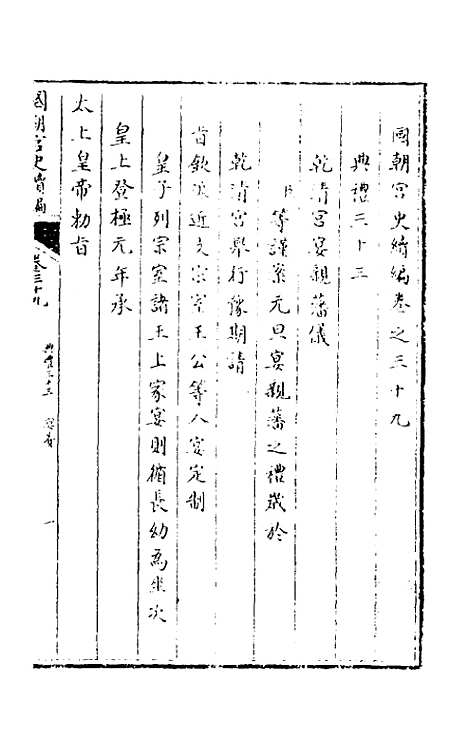 國朝宮史續編卷之三十九
典禮三十三
乾清宮宴親藩儀
臣等謹案元旦宴親藩之禮歲於
乾清宮舉行豫期請
旨欽派近支宗室王公等入宴定制
皇子列宗室諸王上家宴則循長幼為坐次
皇上登極元年承
太上皇帝勅旨
國朝宮史續編
卷三十九
典禮三十三
一